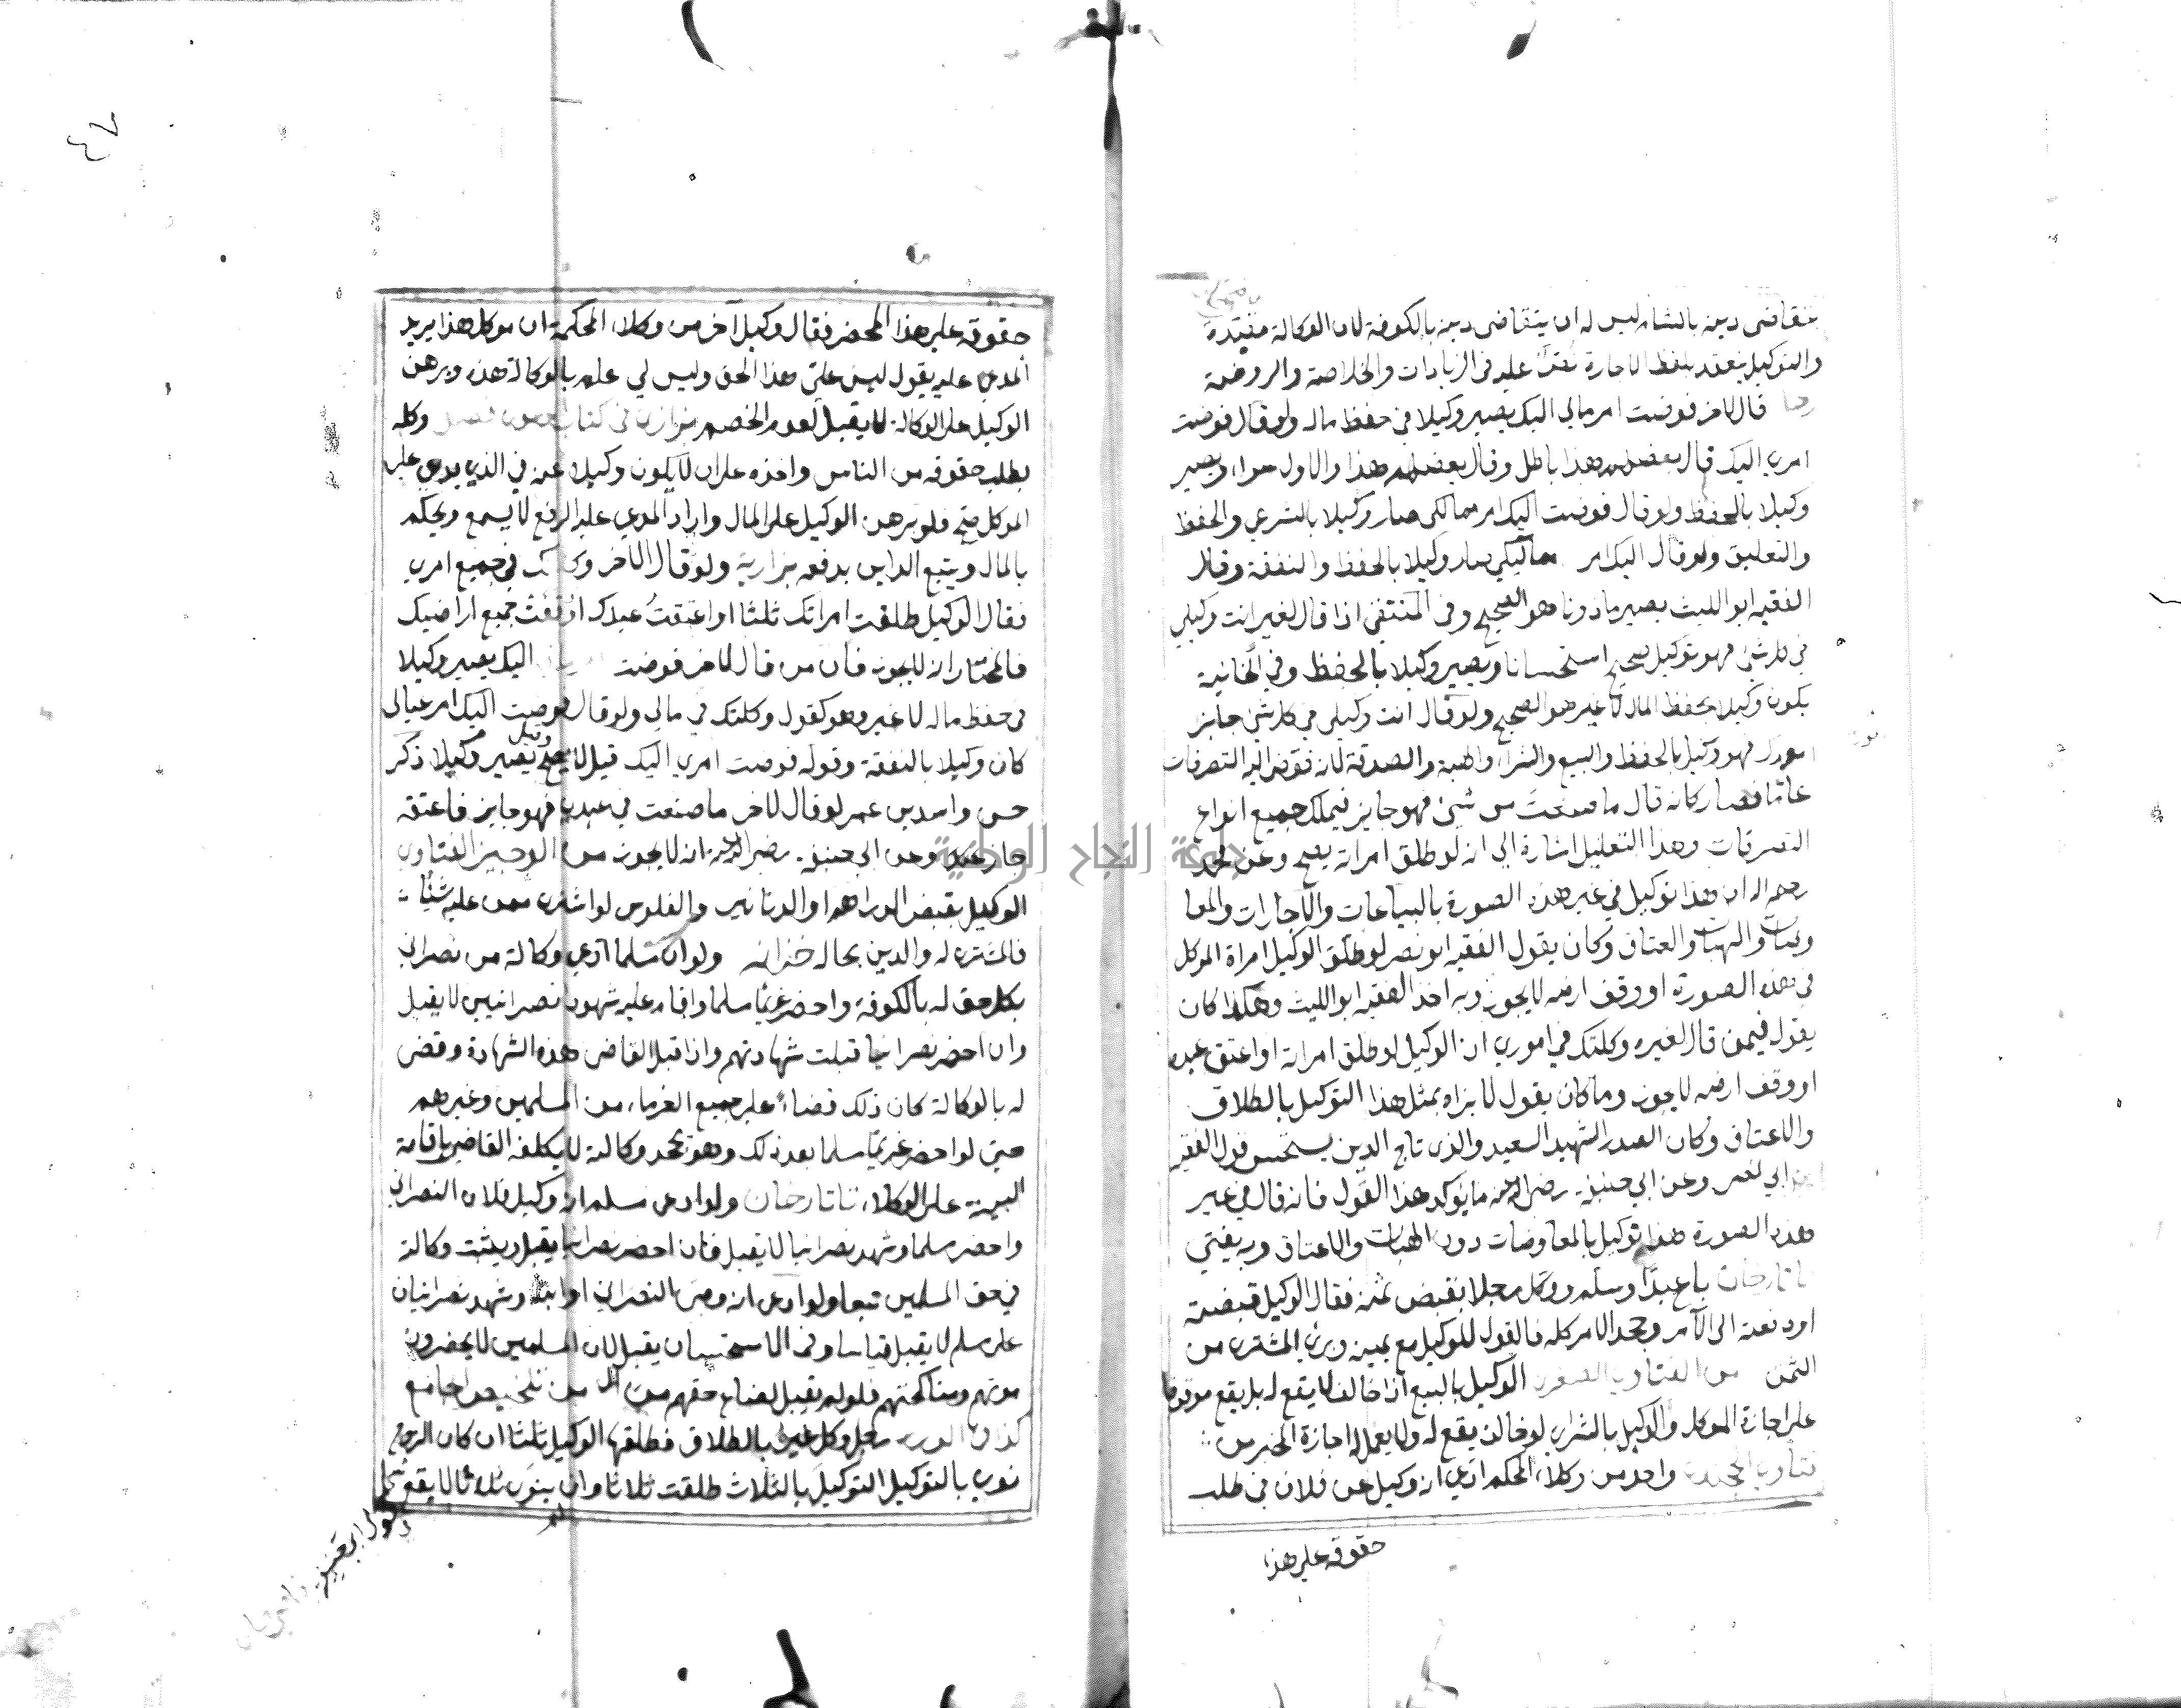 يتقاضى دينه بالشام ليس له ان يتقاضى دينه بالكوفة لان الوكالة مقيدة
والتوكيل ينعقد بلفظ الاجارة نقل عليه في الزيادات والخلاصة والروضة
قال لاخر فوضت امر مالي اليك يصير وكيلا في حفظ ماله ولو قال فوضت
امري اليك قال بعضهم هذا باطل وقال بعضهم هذا والاول سواء ويصير
وكيلا بالحفظ ولو قال فوضت اليك امر ممالكي صار وكيلا بالشرعي والحفظ
والتعليق ولو قال اليك امر مماليكي صار وكيلا بالحفظ والنفقة وقال
الفقيه ابو الليث يصير ماذونا هو الصحيح وفي المنتقى اذا قال لغيره انت وكيلي
في كل شئ فهو توكيل صحيح استحسانا ويصير وكيلا بالحفظ وفي الخانية
يكون وكيلا بحفظ المال لا غير هو الصحيح ولو قال انت وكيلي في كل شئ جايز
امورك فهو وكيل بالحفظ والبيع والشراء والهبة والصدقة لانه فوض اليه التصرفات
عاما فصار كانه قال ما صنعت من شئ فهو جايز فيملك جميع انواع
التصرفات وهذا التعليل اشارة الى انه لو طلق امراته يصح وعن محمد
رحمه الله ان هذا توكيل في غير هذه الصورة بالبياعات والاجارات والمعا
وبتات والهبات والعتاق وكان يقول الفقيه ابو نصر لو طلق الوكيل امراة الموكل
في هذه الصورة او وقف ارضه لا يجوز وبه اخذ الفقيه ابو الليث وهكذا كان
يقول فيمن قال لغيره وكلتك في اموري ان الوكيل لو طلق امراته او اعتق عبده
او وقف ارضه لا يجوز وما كان يقول لا يراه بمثل هذا التوكيل بالطلاق
والاعتاق وكان الصدر الشهيد السعيد والذي تاج الدين يستحسن قول الفقيه
ابي نصر وعن ابي حنيفة رضي الله عنه ما يؤكد هذا القول فانه قال في غير
هذه الصورة هذا توكيل بالمعاوضات دون الهبات والاعتاق وبه يفتي
تاتارخان باع عبدا وسلمه ووكل رجلا بقبض ثمنه فقال الوكيل قبضته
او دفعته الى الآمر وجحد الامر كله فالقول للوكيل مع يمينه وبرئ المشتري من
الثمن من الفتاوي الصغرى الوكيل بالبيع اذا خالف لا يقع له بل يقع موقوفا
على اجازة الموكل والوكيل بالشراء لو خالف يقع له ولا يعمل له اجازة المخبر من
واحد من وكلاء المحكم ادعي انه وكيل عن فلان في طلب
حقوقه على هذا
حقوقه على هذا المحضر فقال وكيل آخر من وكلاء المحكمة ان موكل هذا يريد
المدعى عليه يقول ليس علي هذا الحق وليس لي علم بالوكالة هذه وبرهن
الوكيل على الوكالة لا يقبل لعدم الخصم بزازي في كتاب وكله
بطلب حقوقه من الناس واخذه على ان لا يكون وكيلا عنه في الذي يدعى على
الموكل صح فلو برهن الوكيل على المال واراد المدعي عليه الرفع لا يسمع ويحكم
بالمال ويتبع الداين بدفعه بزازية ولو قال لاخر وكلتك في جميع امري
فقال الوكيل طلقت امراتك ثلثا او اعتقت عبدك او وقفت جميع اراضيك
فالمختار انه لا يجوز فان من قال لاخر فوضت اليك يصير وكيلا
في حفظ ماله لا غير وهو كقول وكلتك في مالي ولو قال فوضت اليك امر عيالي
كان وكيلا بالنفقة وقوله فوضت امري اليك قيل لا يصح وقيل يصير وكيلا ذكر
حسن واسد بن عمر لو قال لاخر ما صنعت في عبدي فهو جايز فاعتقه
جاز عتقه وعن ابي حنيفة رضي الله عنه انه لا يجوز من الوجيز الفتاوي
الوكيل بقبض الدراهم او الدنانير والفلوس لو اشترى ممن عليه شيئا
فالمشتري له والدين بحاله خزانه ولو ان مسلما ادعي وكالة من نصراني
بكل حق له بالكوفة واحضر غريما مسلما واقام عليه شهود نصرانيين لا يقبل
وان احضر نصرانيا قبلت شهادتهم واذا قبل القاضي هذه الشهادة وقضى
له بالوكالة كان ذلك قضاء على جميع الغرماء من المسلمين وغيرهم
حتى لو احضر غريما مسلما بعد ذلك وهو يجحد وكالته لا يكلفه القاضي باقامة
البينة على الوكالة تاتارخان ولو ادعى مسلم انه وكيل فلان النصراني
واحضر مسلما وشهد نصرانيا لا يقبل فان احضر نصرانيا يقبل ويثبت وكالته
في حق المسلمين تبعا ولو ادعى انه وصي النصراني او ابنه وشهد نصرانيان
على مسلم لا يقبل قياسا وفي الاستحسان يقبل لان المسلمين لا يحضرون
موتهم ومناكحتهم فلو لم يقبل لضاع حقهم من تلخيص الجامع
رجل وكل غيره بالطلاق فطلقها الوكيل ثلثا ان كان الزوج
نوى بالتوكيل التوكيل بالثلاث طلقت ثلاثا وان لم ينوي ثلاثا لا يقع شئ